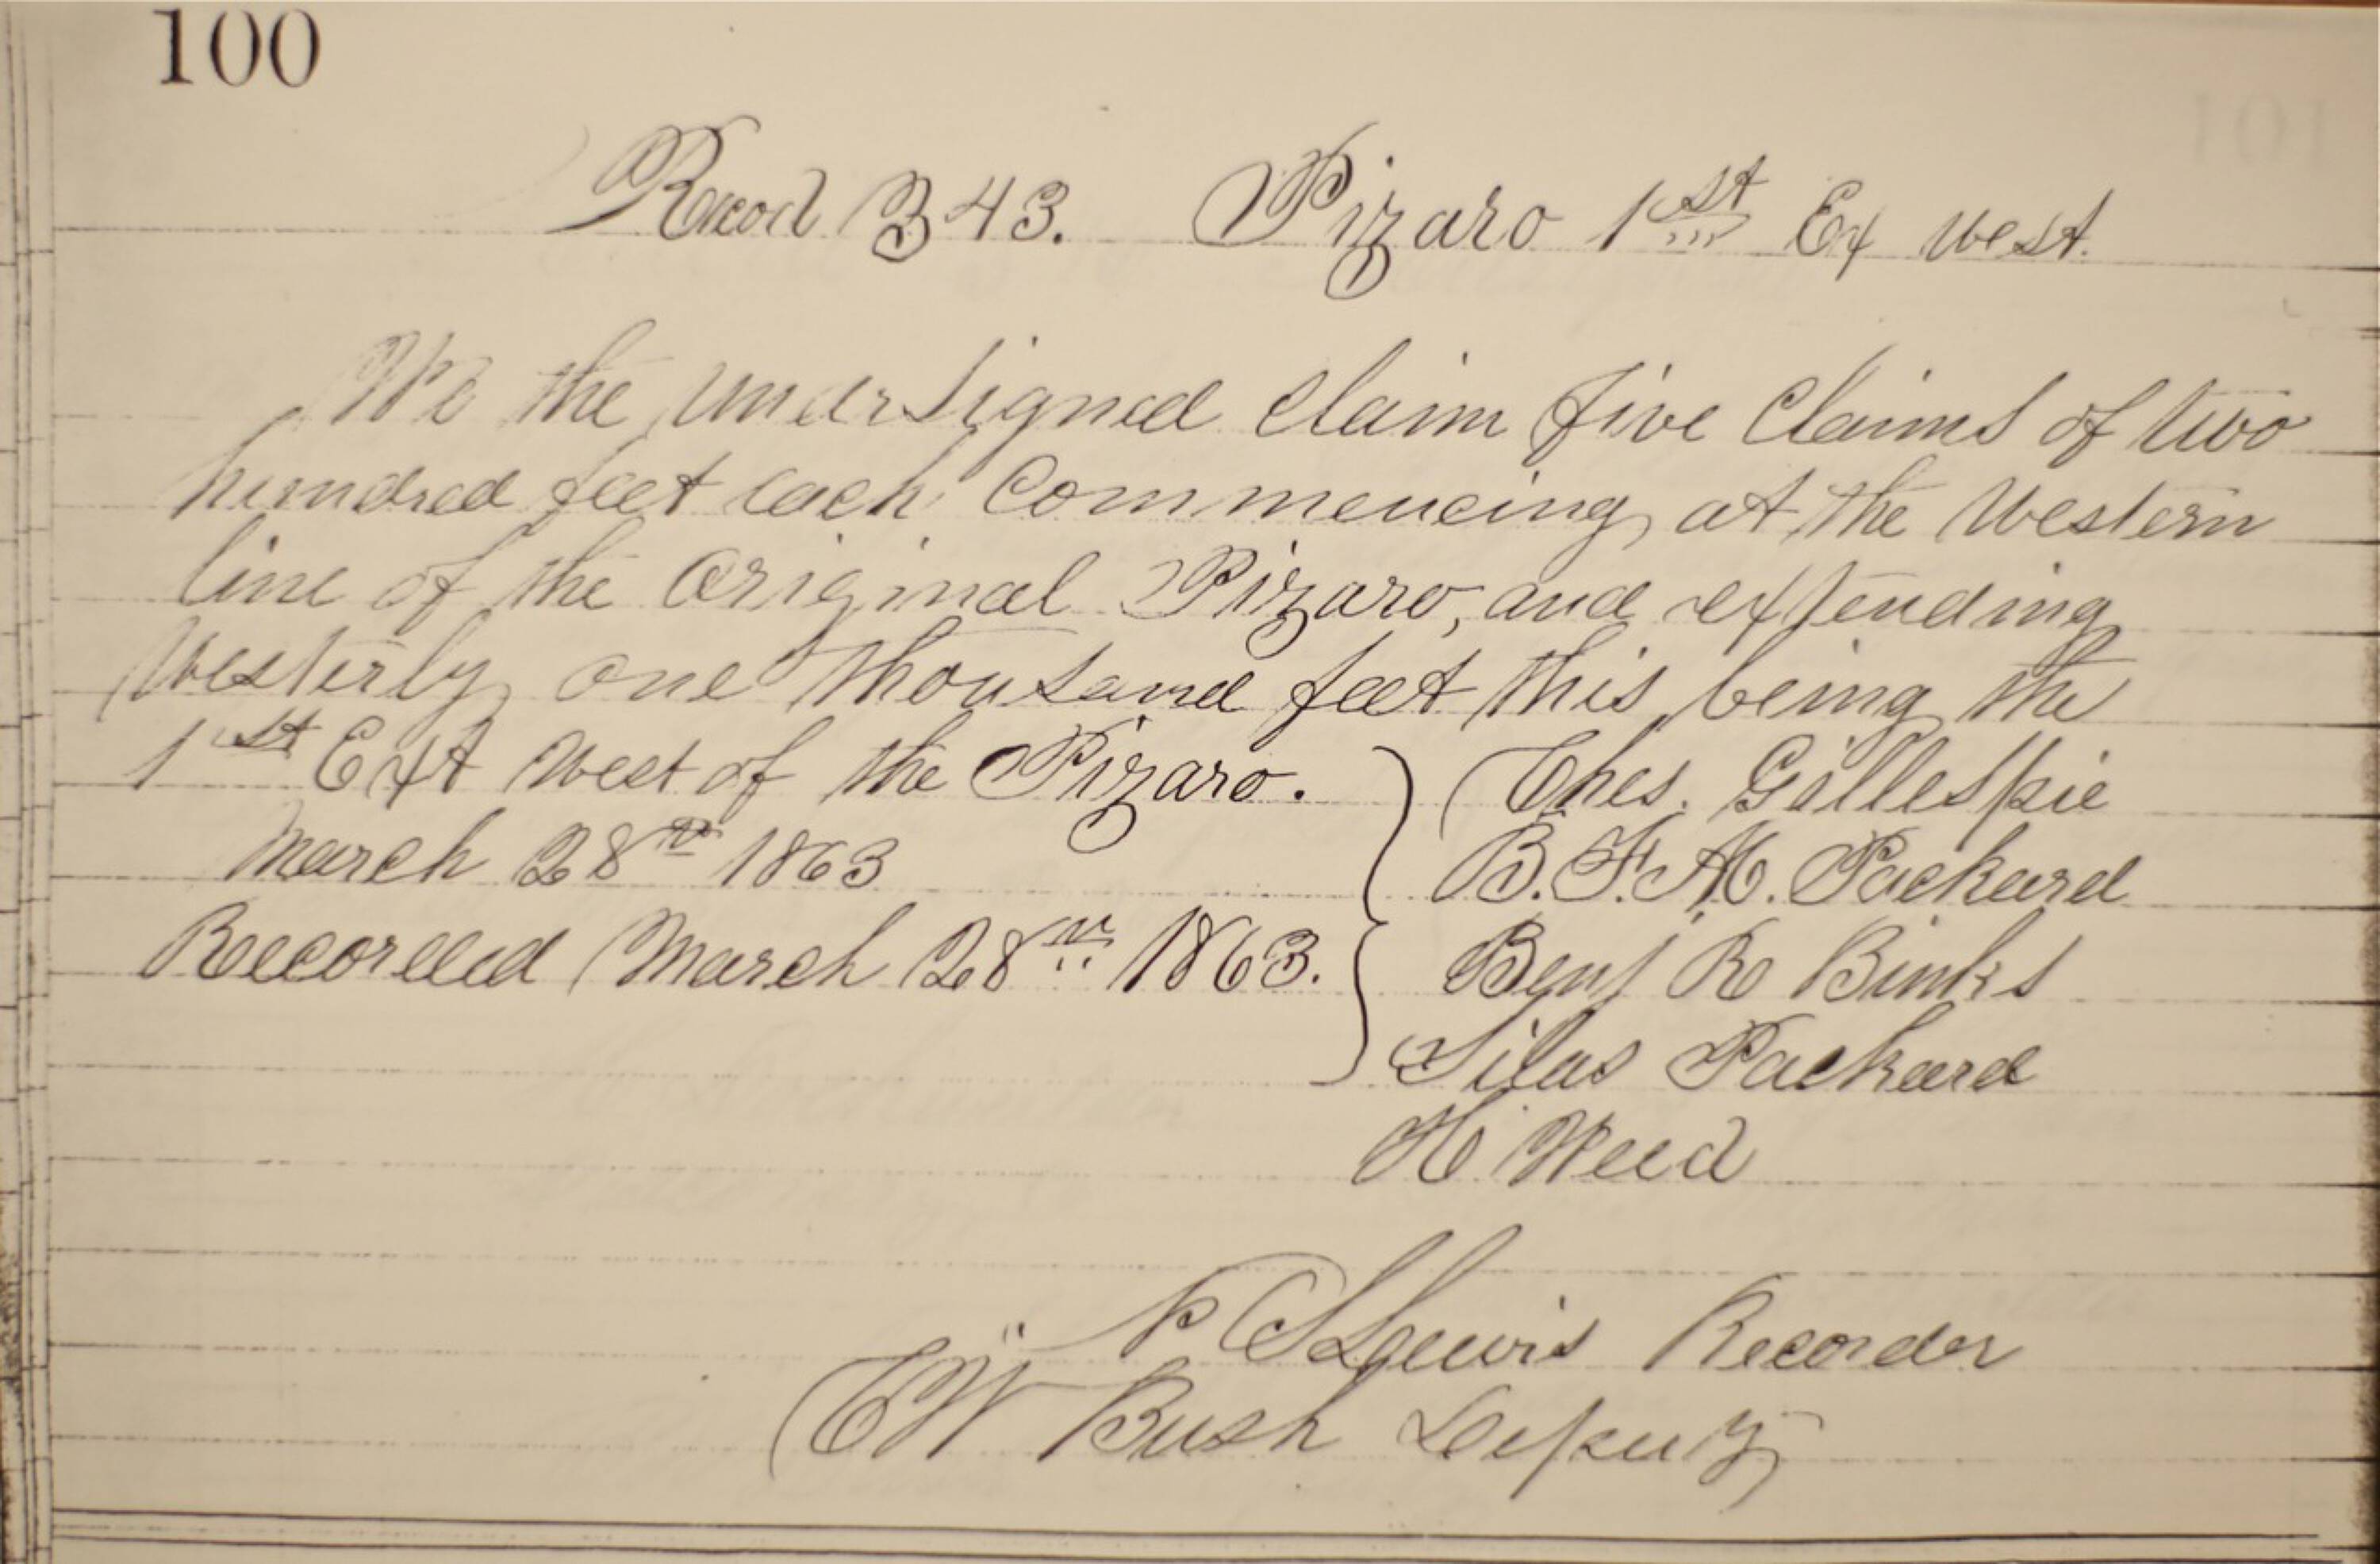 100
101
Record 343. Pizaro 1st Ex West.
We the undersigned claim five Claims of two
hundred feet each Commencing at the Western
line of the Original Pizaro, and extending
Westerly one thousand feet this being the
1st Ext West of the Pizaro. Thes. Gillespie
March 28th 1863 B. F. M. Packard
Recorded March 28th 1863. Benj R Binks
Silas Packard
H Weed
Lewis Recorder
E W Bush Deputy